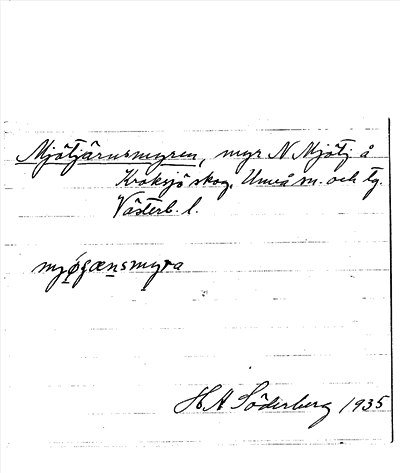 Mjötjärnsmyren, myr N Mjötj å
Kroksjö skog, Umeå sn. och tg.
Västerb. l.
mjøʃænsmyra
H A Söderberg 1935